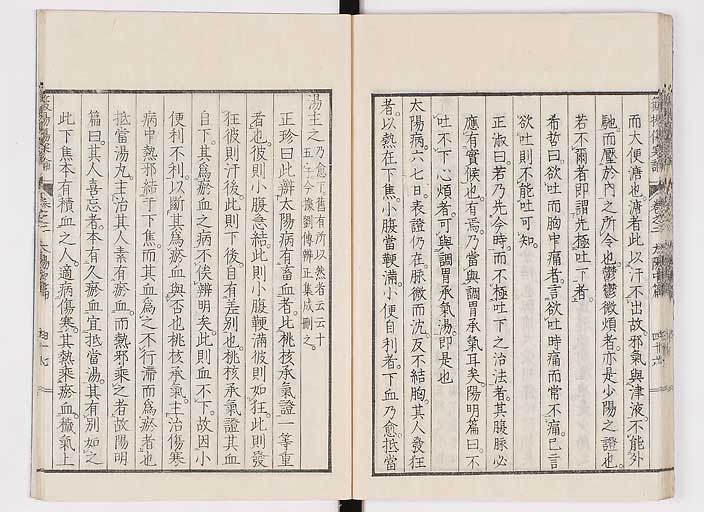 而大便溏也溏者此以汗不出故邪氣與津液不能外
馳而壅於內之所令也鬱鬱微煩者亦是少陽之證也
若不爾者即謂先極吐下者
希哲曰欲吐而胸中痛者言欲吐時痛而常不痛已言
欲吐則不能吐可知
正淑曰若乃先今時而不極吐下之治法者其腹脉必
應有實候也有焉乃當與調胃承氣耳矣陽明篇曰不
吐不下心煩者可與調胃承氣湯即是也
太陽病六七日表證仍在脉微而沈反不結胸其人發狂
者以熱在下焦小腹當鞕滿小便自利者下血乃愈抵當
湯主之乃愈了舊有所以然者云云十五字今據劉傳辨正集成刪之
正珍曰此辨太陽病有畜血者比桃核承氣證一等重
者也彼則小腹急結此則小腹鞕滿彼則如狂此則發
狂彼則汗後此則下後自有差別也桃核承氣證其血
自下其為瘀血之病不俟辨明矣此則血不下故因小
便利不利以斷其為瘀血與否也桃核承氣主治傷寒
病中熱邪結于下焦而其血為之不行滯而為瘀者也
抵當湯丸主治其人素有瘀血而熱邪乘之者故陽明
篇曰其人喜忘者本有久瘀血宜抵當湯其有別如之
此下焦本有積血之人適病傷寒其熱乘瘀血穢氣上